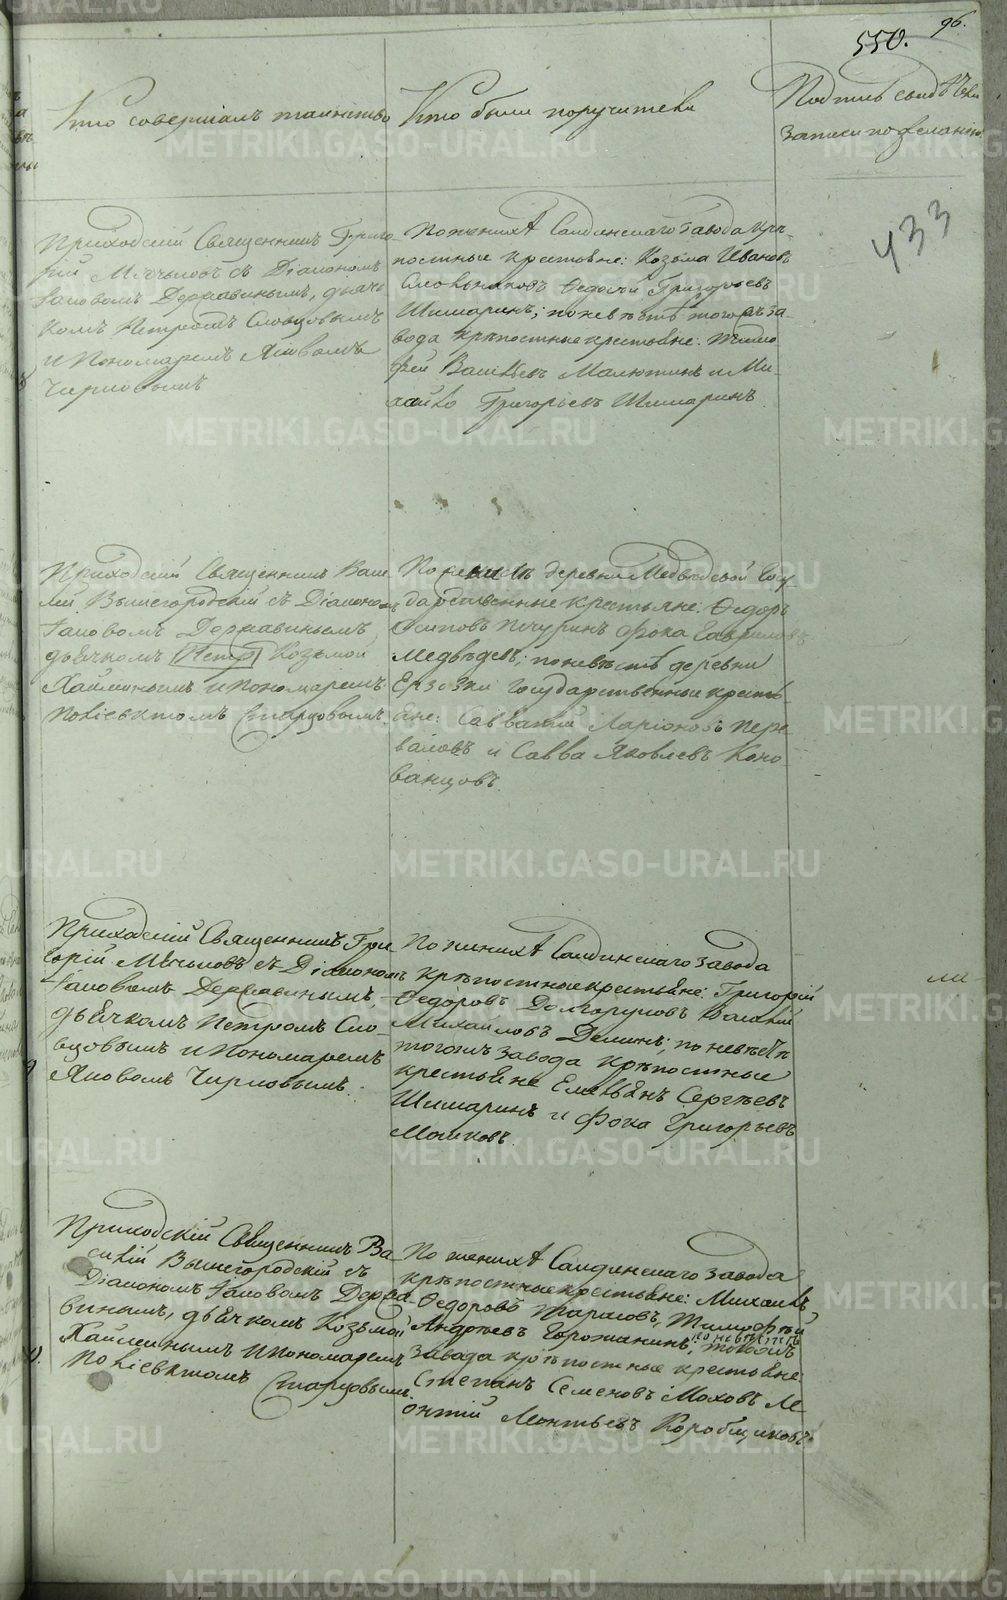 96.
550.
Кто совершалъ таинство
Кто были поручители
Подпись свидѣтелей
записи по желанію
433
Приходскій Священникъ Григо-
рій Мѣчьловъ съ Діакономъ
Іаковомъ Державинымъ, дьяч-
комъ Петромъ Словцовымъ
и Пономаремъ Яковомъ
Чирковымъ
По женихѣ Салдинскаго завода крѣ-
постные крестьяне: Козьма Ивановъ
Ѳедосѣй Григорьевъ
Шимаринъ; по невѣстѣ тогожъ за-
вода крѣпостные крестьяне: Тимо-
фей Васильевъ Малютинъ и Ми-
хайло Григорьевъ Шимаринъ
Приходскій Священникъ Васи-
лій Вышегородскій съ Діакономъ
Іаковомъ Державинымъ,
дьячкомъ Козьмой
Хайминымъ и пономаремъ
Поліевктомъ Старцовымъ
По женихѣ деревни Медвѣдевой Госу-
дарственные крестьяне: Ѳедоръ
Осиповъ Печуринъ Фока Гавриловъ
Медвѣдевъ; по невѣстѣ деревни
Ерзовки государственные кресть-
яне: Савватій Ларіоновъ Пере-
валовъ и Савва Яковлевъ Коно-
ванцовъ
Приходскій Священникъ Гри-
горій Мѣчьловъ съ Діакономъ
Іаковомъ Державинымъ,
дьячкомъ Петромъ Сло-
вцовымъ и Пономаремъ
Яковомъ Чирковымъ.
По женихѣ Салдинскаго завода
крѣпостные крестьяне: Григорій
Ѳедоровъ Долгоруковъ Василій
Михайловъ Деминъ; по невѣстѣ
тогожъ завода крѣпостные
крестьяне Емельянъ Сергѣевъ
Шимаринъ и Фока Григорьевъ
Машковъ
Приходскій Священникъ Ва-
силій Вышегородскій съ
Діакономъ Іаковомъ Держа-
винымъ, дьячкомъ Козьмой
Хайминымъ и пономаремъ
Поліевктомъ Старцовымъ
По женихѣ Салдинскаго завода
крѣпостные крестьяне: Михаилъ
Ѳедоровъ Тарасовъ, Тимофѣй
Андреевъ Горожанинъ; по невѣстѣ тогожъ
завода крѣпостные крестьяне
Степанъ Семеновъ Моховъ Ле-
онтій Леонтьевъ Коробщиковъ
METRIKI.GASO-URAL.RU